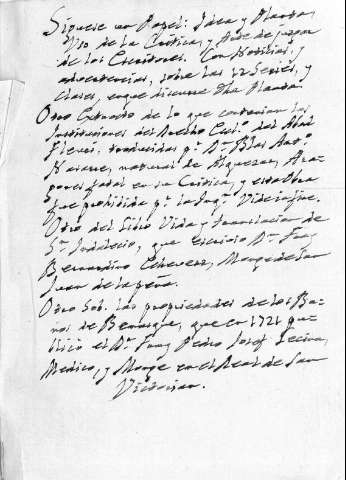 Siguese un Papel: Idea y Planta,
Uso de la Critica, y Arte de juzgar
de los Escritores. Con Noticias, y
advertencias, sobre las 12 Series, y
Clases, en que discurre Dha Planta.
Otro Extracto de lo que contenian las
Instituciones del Drecho Ces.º del Abad
Fleuri, traducidas p.r D.n Blas Ant.º
Nasarre, natural de Alquezar, Ara-
por fatal en su Critica, y esta Obra
fue prohibida p.r la Inq.n
Otro del Libro Vida y translacion de
S.n Indalecio, que escrivio D.n Fray
Bernardino Echeverz, Monge de San
Juan de la peña.
Otro Sob. las propiedades de los Ba-
ños de Benasque, que en 1721 pu-
blicó el D.r Fray Pedro Josef Lecina,
Medico, y Monge en el Real de San
Victorian.